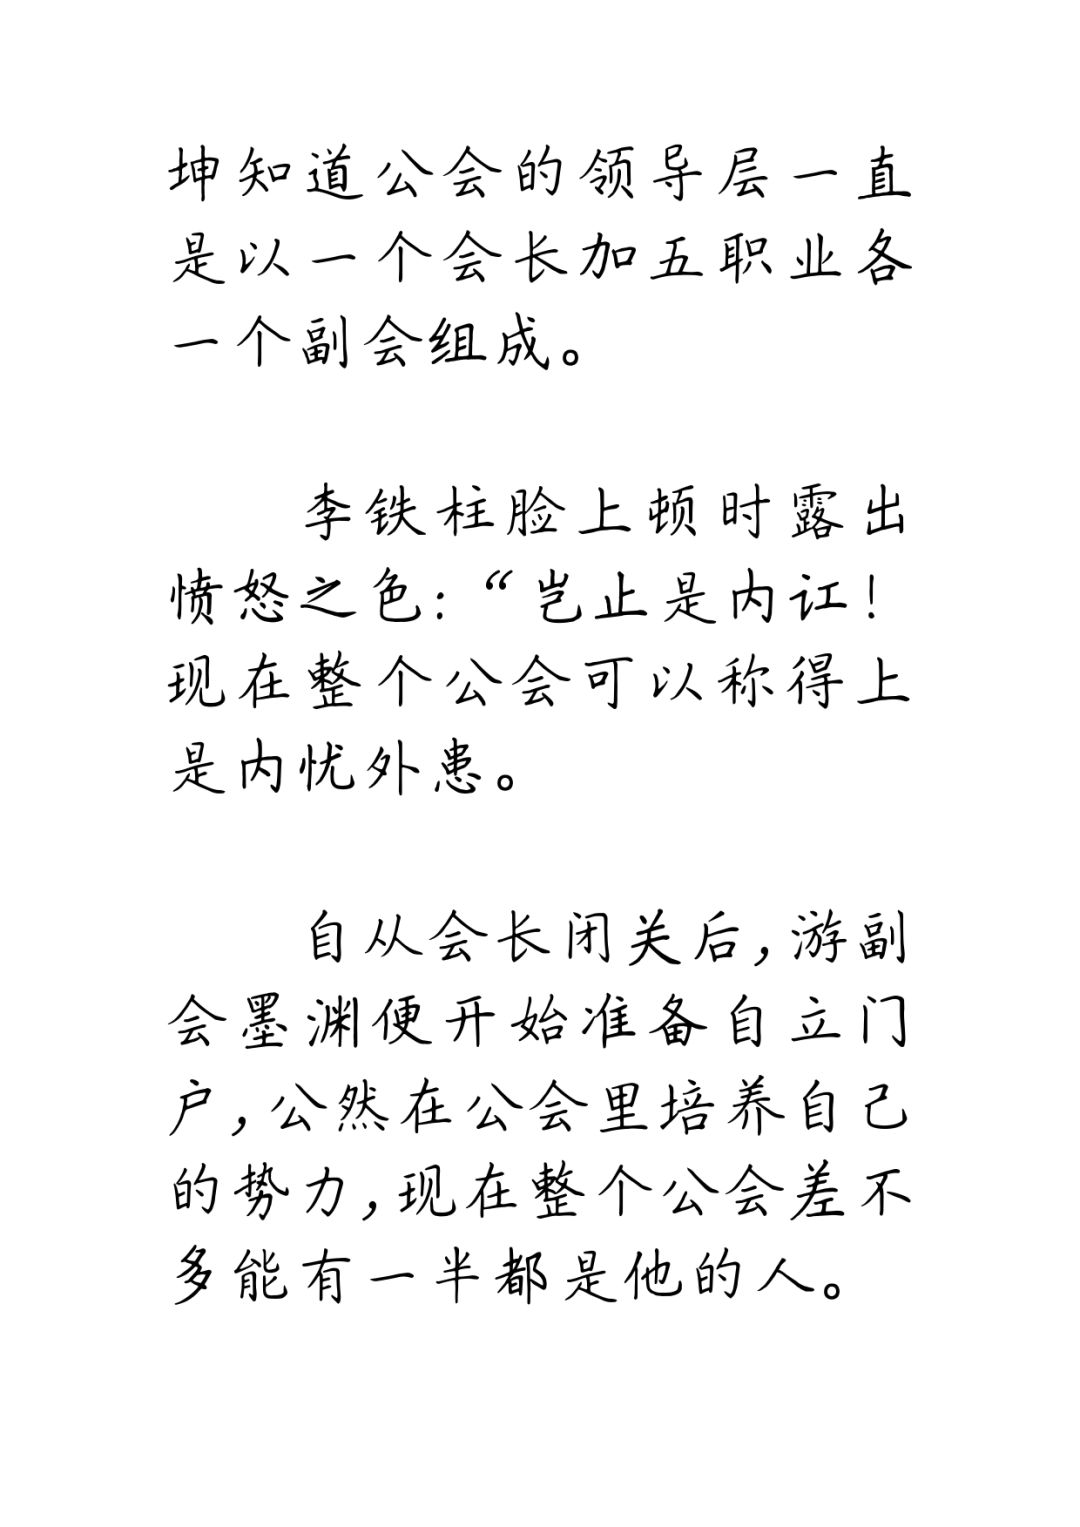 坤知道公会的领导层一直
是以一个会长加五职业各
一个副会组成。
李铁柱脸上顿时露出
愤怒之色：“岂止是内讧！
现在整个公会可以称得上
是内忧外患。
自从会长闭关后，游副
会墨渊便开始准备自立门
户，公然在公会里培养自己
的势力，现在整个公会差不
多能有一半都是他的人。